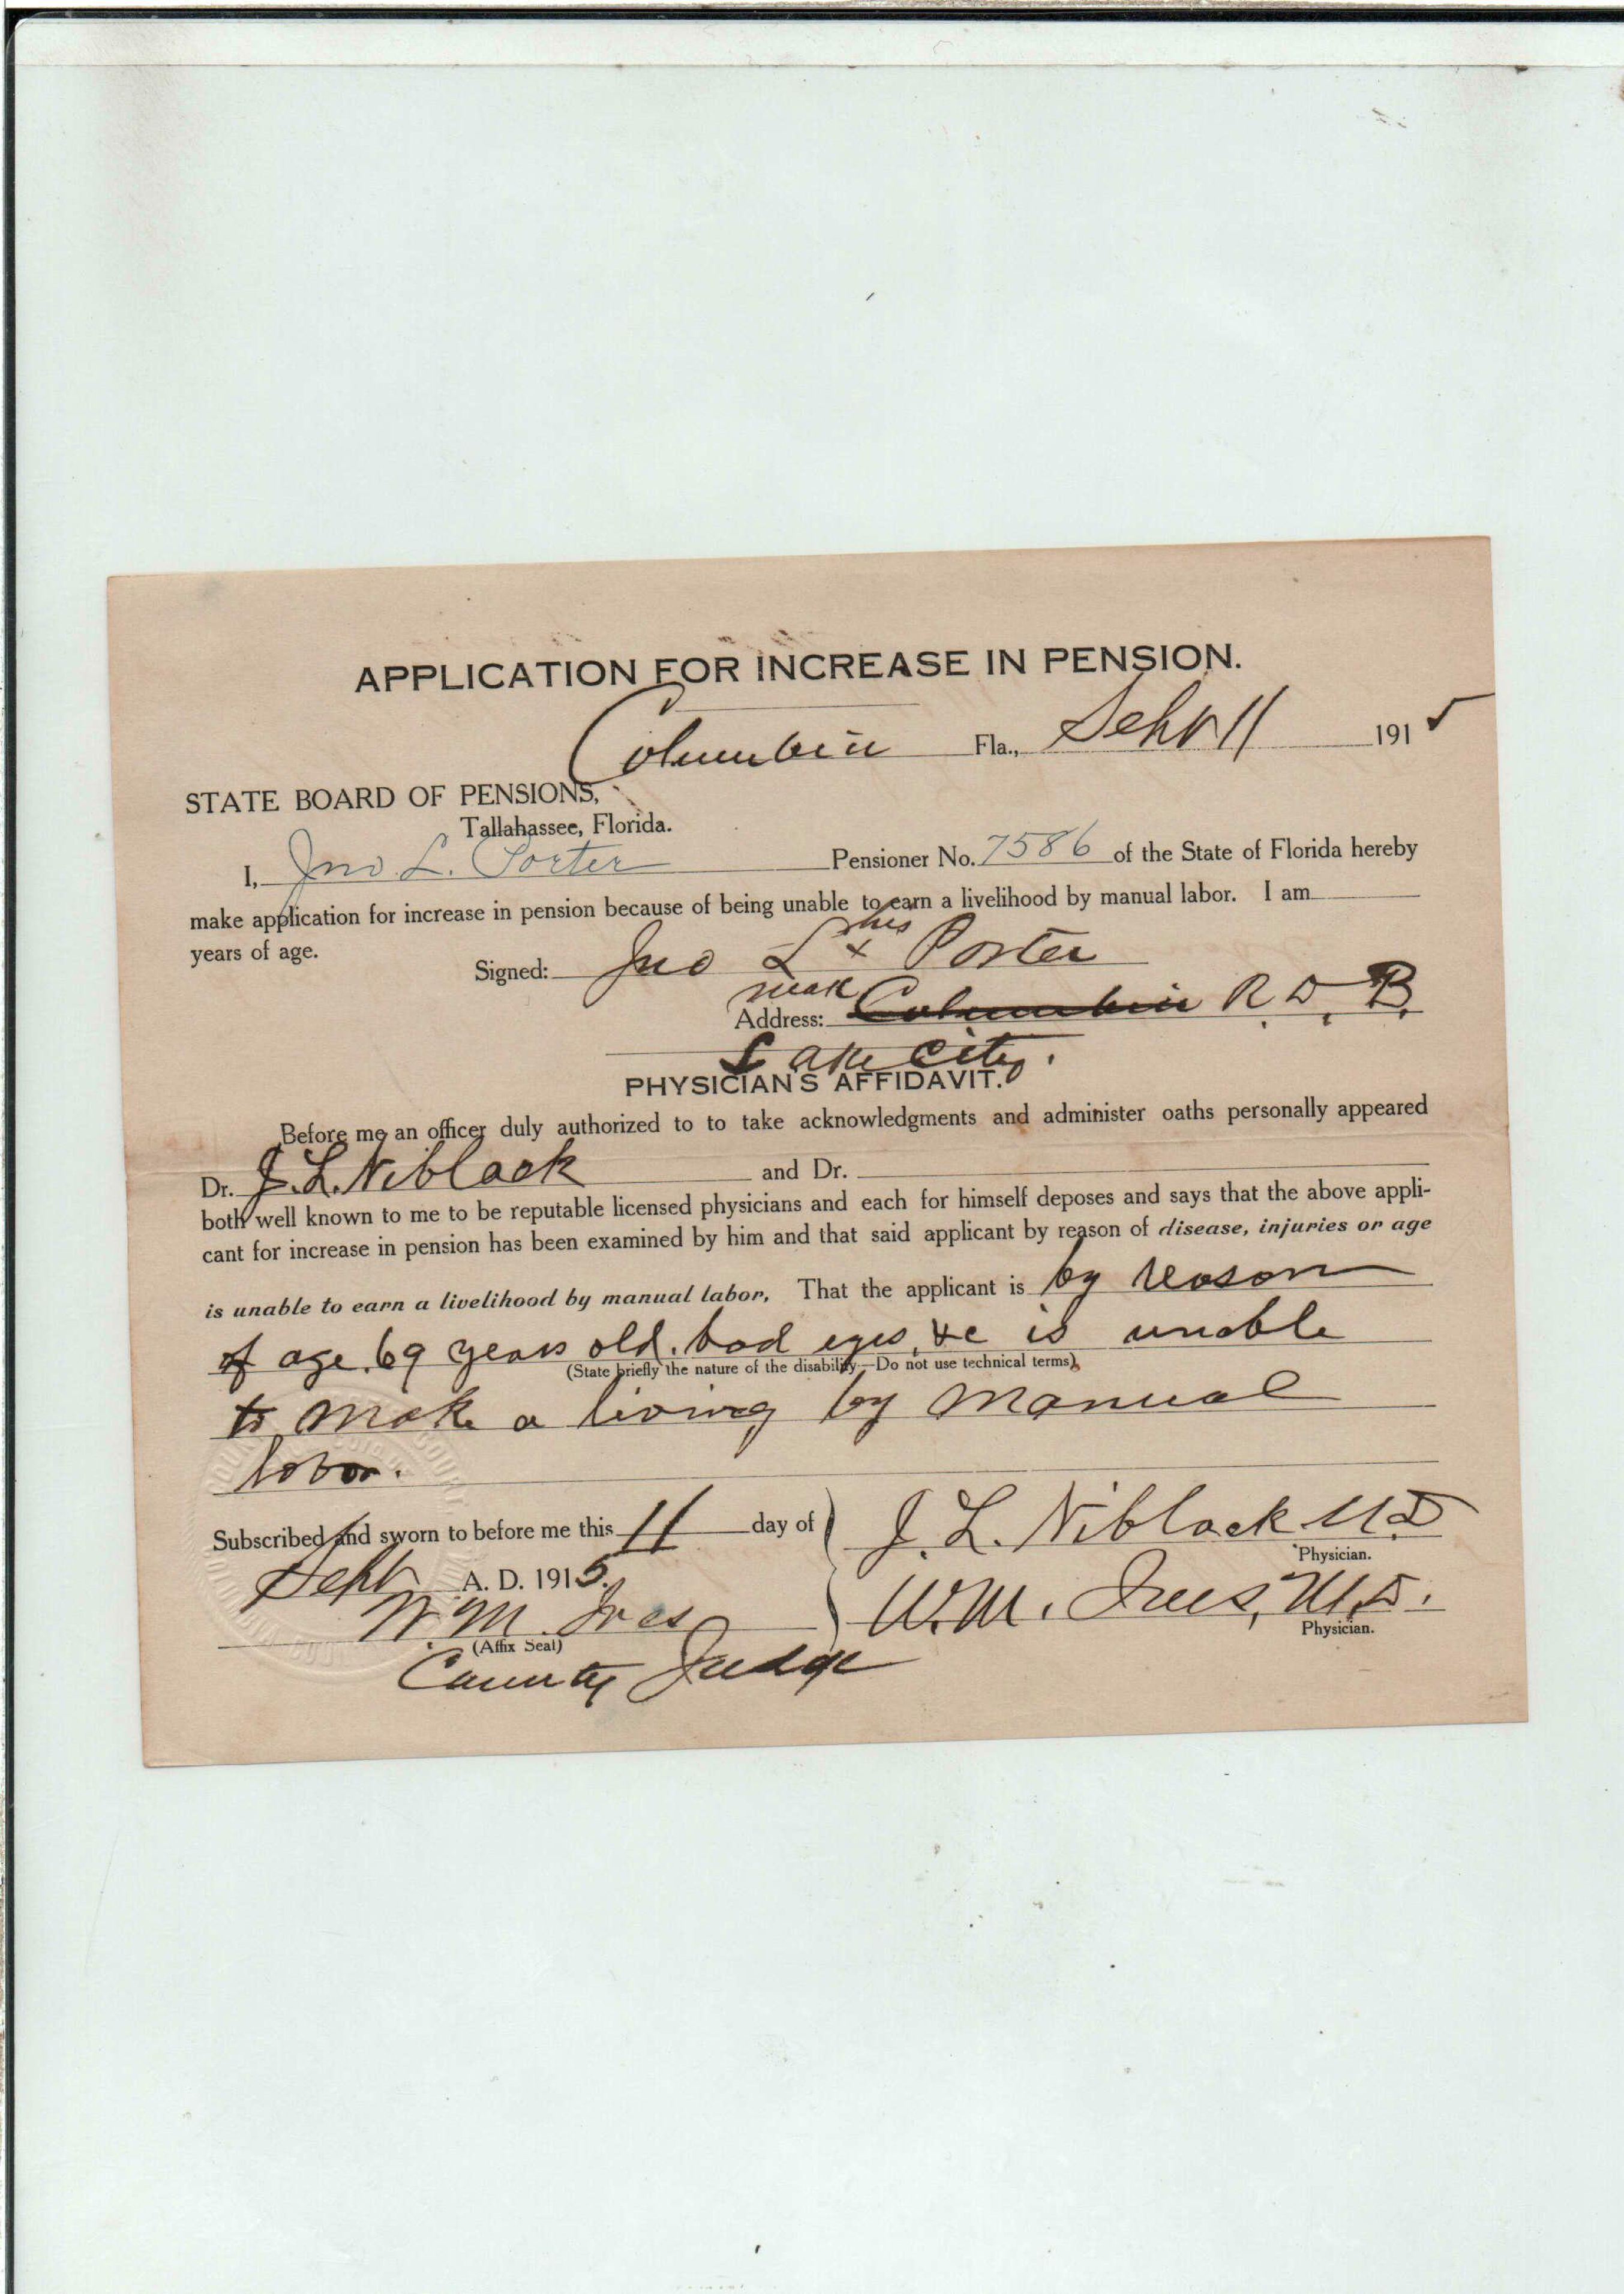 APPLICATION FOR INCREASE IN PENSION.
Columbia Fla., Sept 11 1915
STATE BOARD OF PENSIONS,
Tallahassee, Florida.
I, Jno. L. Porter Pensioner No. 7586 of the State of Florida hereby
make application for increase in pension because of being unable to earn a livelihood by manual labor. I am
years of age.
his
Signed: Jno L x Porter
mark
Address: Columbia R. D. B.
Lake City.
PHYSICIANS AFFIDAVIT.
Before me an officer duly authorized to to take acknowledgments and administer oaths personally appeared
Dr. J. L. Niblack and Dr.
both well known to me to be reputable licensed physicians and each for himself deposes and says that the above appli-
cant for increase in pension has been examined by him and that said applicant by reason of disease, injuries or age
is unable to earn a livelihood by manual labor, That the applicant is by reason
of age. 69 years old. bad eyes, &c is unable
(State briefly the nature of the disability—Do not use technical terms)
to make a living by manual
labor.
Subscribed and sworn to before me this 11 day of J. L. Niblack M D
Physician.
Sept A. D. 1915.
W. M. Ives W. M. Ives, M. D.
(Affix Seal) Physician.
County Judge